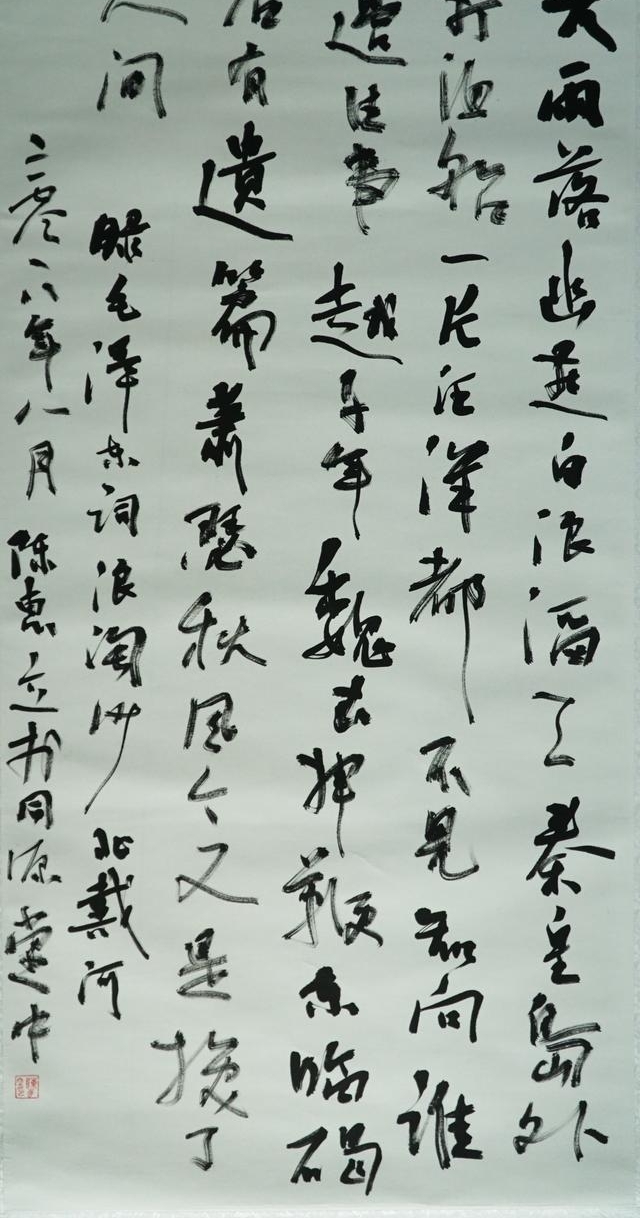 大雨落幽燕白浪滔天秦皇島外
打渔船一片汪洋都不見知向誰
邊往事越千年魏武挥鞭东临碣
石有遺篇蕭瑟秋风今又是换了
人间 録毛泽东词浪淘沙 北戴河
二零一八年八月 陈惠立书同源堂中